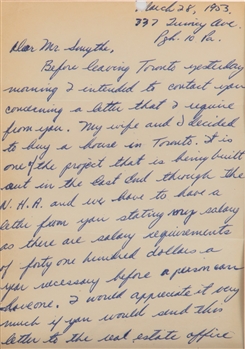 March 28, 1953,
737 Turney Ave
Pgh. 10 Pa.
Dear Mr. Smythe,
Before leaving Toronto yesterday
morning I intended to contact you
concerning a letter that I require
from you. My wife and I decided
to buy a house in Toronto. It is
one of the project that is being built
out in the East End through the
N.H.A. and we have to have a
letter from you stating my salary
as there are salary requirements
of forty one hundred dollars a
year necessary before a person can
have one. I would appreciate it very
much if you would send this
letter to the real estate office